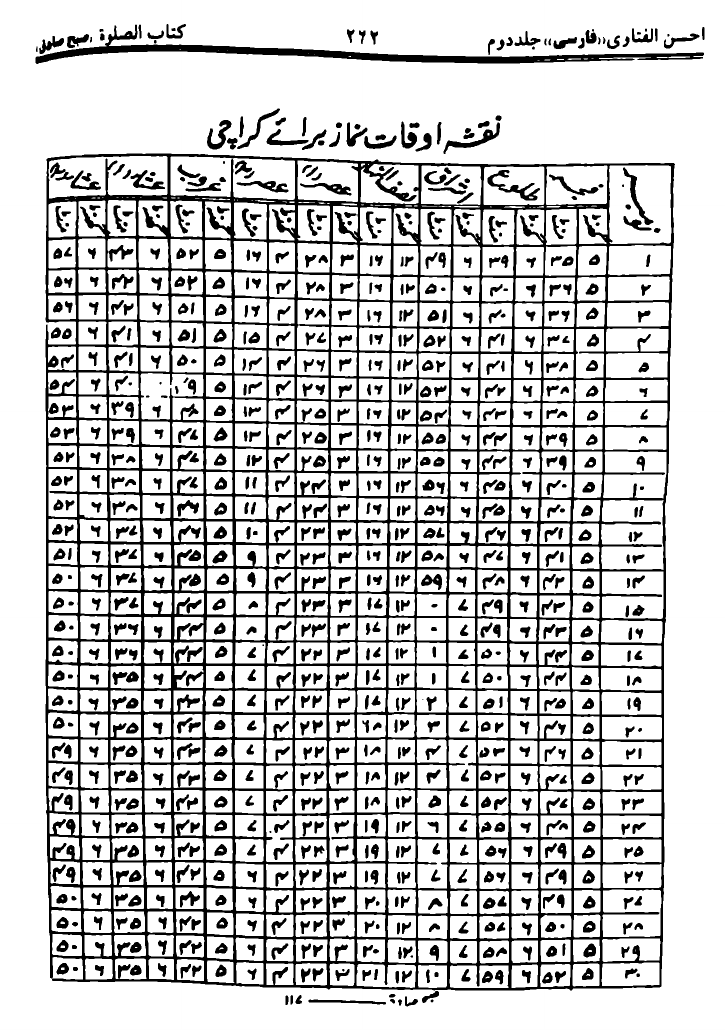 احسن الفتاوی «فارسی» جلد دوم ۲۶۲ کتاب الصلوة «صبح صادق»
نقشہ اوقات نماز برائے کراچی
نومبر فجر طلوع اشراق نصف النهار عصر عصر غروب عشاء عشاء
گھنٹہ منٹ گھنٹہ منٹ گھنٹہ منٹ گھنٹہ منٹ گھنٹہ منٹ گھنٹہ منٹ گھنٹہ منٹ گھنٹہ منٹ گھنٹہ منٹ
۱ ۵ ۳۵ ۶ ۳۹ ۶ ۴۹ ۱۲ ۱۶ ۳ ۲۸ ۴ ۱۶ ۵ ۵۲ ۶ ۴۳ ۶ ۵۷
۲ ۵ ۳۶ ۶ ۴۰ ۶ ۵۰ ۱۲ ۱۶ ۳ ۲۸ ۴ ۱۶ ۵ ۵۲ ۶ ۴۲ ۶ ۵۶
۳ ۵ ۳۶ ۶ ۴۰ ۶ ۵۱ ۱۲ ۱۶ ۳ ۲۸ ۴ ۱۶ ۵ ۵۱ ۶ ۴۲ ۶ ۵۶
۴ ۵ ۳۷ ۶ ۴۱ ۶ ۵۲ ۱۲ ۱۶ ۳ ۲۷ ۴ ۱۵ ۵ ۵۱ ۶ ۴۱ ۶ ۵۵
۵ ۵ ۳۸ ۶ ۴۱ ۶ ۵۲ ۱۲ ۱۶ ۳ ۲۶ ۴ ۱۴ ۵ ۵۰ ۶ ۴۱ ۶ ۵۴
۶ ۵ ۳۸ ۶ ۴۲ ۶ ۵۳ ۱۲ ۱۶ ۳ ۲۶ ۴ ۱۴ ۵ ۴۰ ۶ ۵۴
۷ ۵ ۳۸ ۶ ۴۳ ۶ ۵۴ ۱۲ ۱۶ ۳ ۲۵ ۴ ۱۳ ۵ ۴۸ ۶ ۳۹ ۶ ۵۳
۸ ۵ ۳۹ ۶ ۴۴ ۶ ۵۵ ۱۲ ۱۶ ۳ ۲۵ ۴ ۱۳ ۵ ۴۷ ۶ ۳۹ ۶ ۵۳
۹ ۵ ۳۹ ۶ ۴۴ ۶ ۵۵ ۱۲ ۱۶ ۳ ۲۵ ۴ ۱۲ ۵ ۴۷ ۶ ۳۸ ۶ ۵۲
۱۰ ۵ ۴۰ ۶ ۴۵ ۶ ۵۶ ۱۲ ۱۶ ۳ ۲۴ ۴ ۱۱ ۵ ۴۷ ۶ ۳۸ ۶ ۵۲
۱۱ ۵ ۴۰ ۶ ۴۵ ۶ ۵۶ ۱۲ ۱۶ ۳ ۲۴ ۴ ۱۱ ۵ ۴۶ ۶ ۳۸ ۶ ۵۲
۱۲ ۵ ۴۱ ۶ ۴۶ ۶ ۵۷ ۱۲ ۱۶ ۳ ۲۳ ۴ ۱۰ ۵ ۴۶ ۶ ۳۷ ۶ ۵۲
۱۳ ۵ ۴۱ ۶ ۴۷ ۶ ۵۸ ۱۲ ۱۶ ۳ ۲۳ ۴ ۹ ۵ ۴۵ ۶ ۳۷ ۶ ۵۱
۱۴ ۵ ۴۲ ۶ ۴۸ ۶ ۵۹ ۱۲ ۱۶ ۳ ۲۳ ۴ ۹ ۵ ۴۵ ۶ ۳۷ ۶ ۵۰
۱۵ ۵ ۴۳ ۶ ۴۹ ۷ ۰ ۱۲ ۱۷ ۳ ۲۳ ۴ ۸ ۵ ۴۴ ۶ ۳۷ ۶ ۵۰
۱۶ ۵ ۴۳ ۶ ۴۹ ۷ ۰ ۱۲ ۱۷ ۳ ۲۳ ۴ ۸ ۵ ۴۴ ۶ ۳۶ ۶ ۵۰
۱۷ ۵ ۴۴ ۶ ۵۰ ۷ ۱ ۱۲ ۱۷ ۳ ۲۲ ۴ ۷ ۵ ۴۴ ۶ ۳۶ ۶ ۵۰
۱۸ ۵ ۴۴ ۶ ۵۰ ۷ ۱ ۱۲ ۱۷ ۳ ۲۲ ۴ ۷ ۵ ۴۴ ۶ ۳۵ ۶ ۵۰
۱۹ ۵ ۴۵ ۶ ۵۱ ۷ ۲ ۱۲ ۱۷ ۳ ۲۲ ۴ ۷ ۵ ۴۳ ۶ ۳۵ ۶ ۵۰
۲۰ ۵ ۴۶ ۶ ۵۲ ۷ ۳ ۱۲ ۱۸ ۳ ۲۲ ۴ ۷ ۵ ۴۳ ۶ ۳۵ ۶ ۵۰
۲۱ ۵ ۴۶ ۶ ۵۳ ۷ ۴ ۱۲ ۱۸ ۳ ۲۲ ۴ ۷ ۵ ۴۳ ۶ ۳۵ ۶ ۴۹
۲۲ ۵ ۴۷ ۶ ۵۳ ۷ ۴ ۱۲ ۱۸ ۳ ۲۲ ۴ ۷ ۵ ۴۳ ۶ ۳۵ ۶ ۴۹
۲۳ ۵ ۴۷ ۶ ۵۴ ۷ ۵ ۱۲ ۱۸ ۳ ۲۲ ۴ ۷ ۵ ۴۲ ۶ ۳۵ ۶ ۴۹
۲۴ ۵ ۴۸ ۶ ۵۵ ۷ ۶ ۱۲ ۱۹ ۳ ۲۲ ۴ ۶ ۵ ۴۲ ۶ ۳۵ ۶ ۴۹
۲۵ ۵ ۴۹ ۶ ۵۶ ۷ ۷ ۱۲ ۱۹ ۳ ۲۲ ۴ ۶ ۵ ۴۲ ۶ ۳۵ ۶ ۴۹
۲۶ ۵ ۴۹ ۶ ۵۶ ۷ ۷ ۱۲ ۱۹ ۳ ۲۲ ۴ ۶ ۵ ۴۲ ۶ ۳۵ ۶ ۴۹
۲۷ ۵ ۴۹ ۶ ۵۷ ۷ ۸ ۱۲ ۲۰ ۳ ۲۲ ۴ ۶ ۵ ۴۲ ۶ ۳۵ ۶ ۵۰
۲۸ ۵ ۵۰ ۶ ۵۷ ۷ ۸ ۱۲ ۲۰ ۳ ۲۲ ۴ ۶ ۵ ۴۲ ۶ ۳۵ ۶ ۵۰
۲۹ ۵ ۵۱ ۶ ۵۸ ۷ ۹ ۱۲ ۲۰ ۳ ۲۲ ۴ ۶ ۵ ۴۲ ۶ ۳۵ ۶ ۵۰
۳۰ ۵ ۵۲ ۶ ۵۹ ۷ ۱۰ ۱۲ ۲۱ ۳ ۲۲ ۴ ۶ ۵ ۴۲ ۶ ۳۵ ۶ ۵۰
صبح صادق ——— ۱۱۷